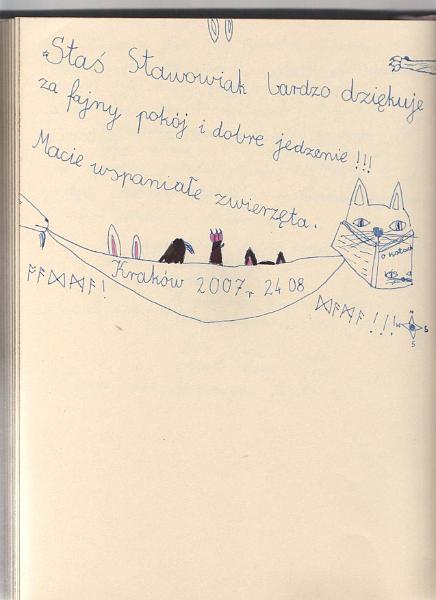 Staś Stawowiak bardzo dziękuje
za fajny pokój i dobre jedzenie !!!
Macie wspaniałe zwierzęta.
o kotach
Kraków 2007r 24 08
N
S